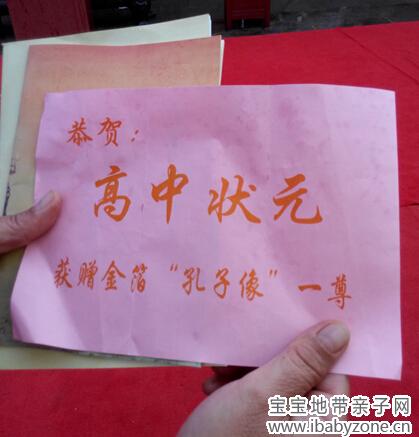 恭贺：
高中状元
获赠金箔“孔子像”一尊
宝宝地带亲子网
www.ibabyzone.cn